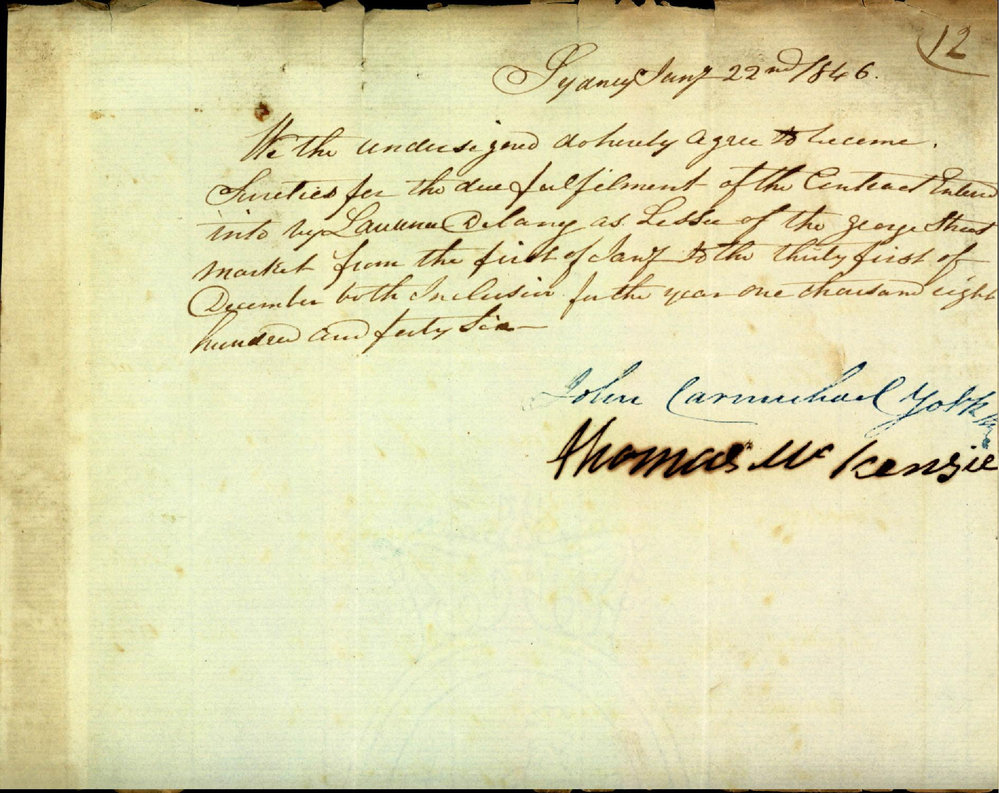 12
Sydney Jany 22nd 1846.
We the undersigned do hereby agree to become
Sureties for the due fulfilment of the Contract Entered
into by Laurence Delany as Lessee of the george Street
market from the first of Jany to the thirty first of
December both Inclusive for the year one thousand eight
hundred and forty six
John Carmichael
Thomas Mc Kensie